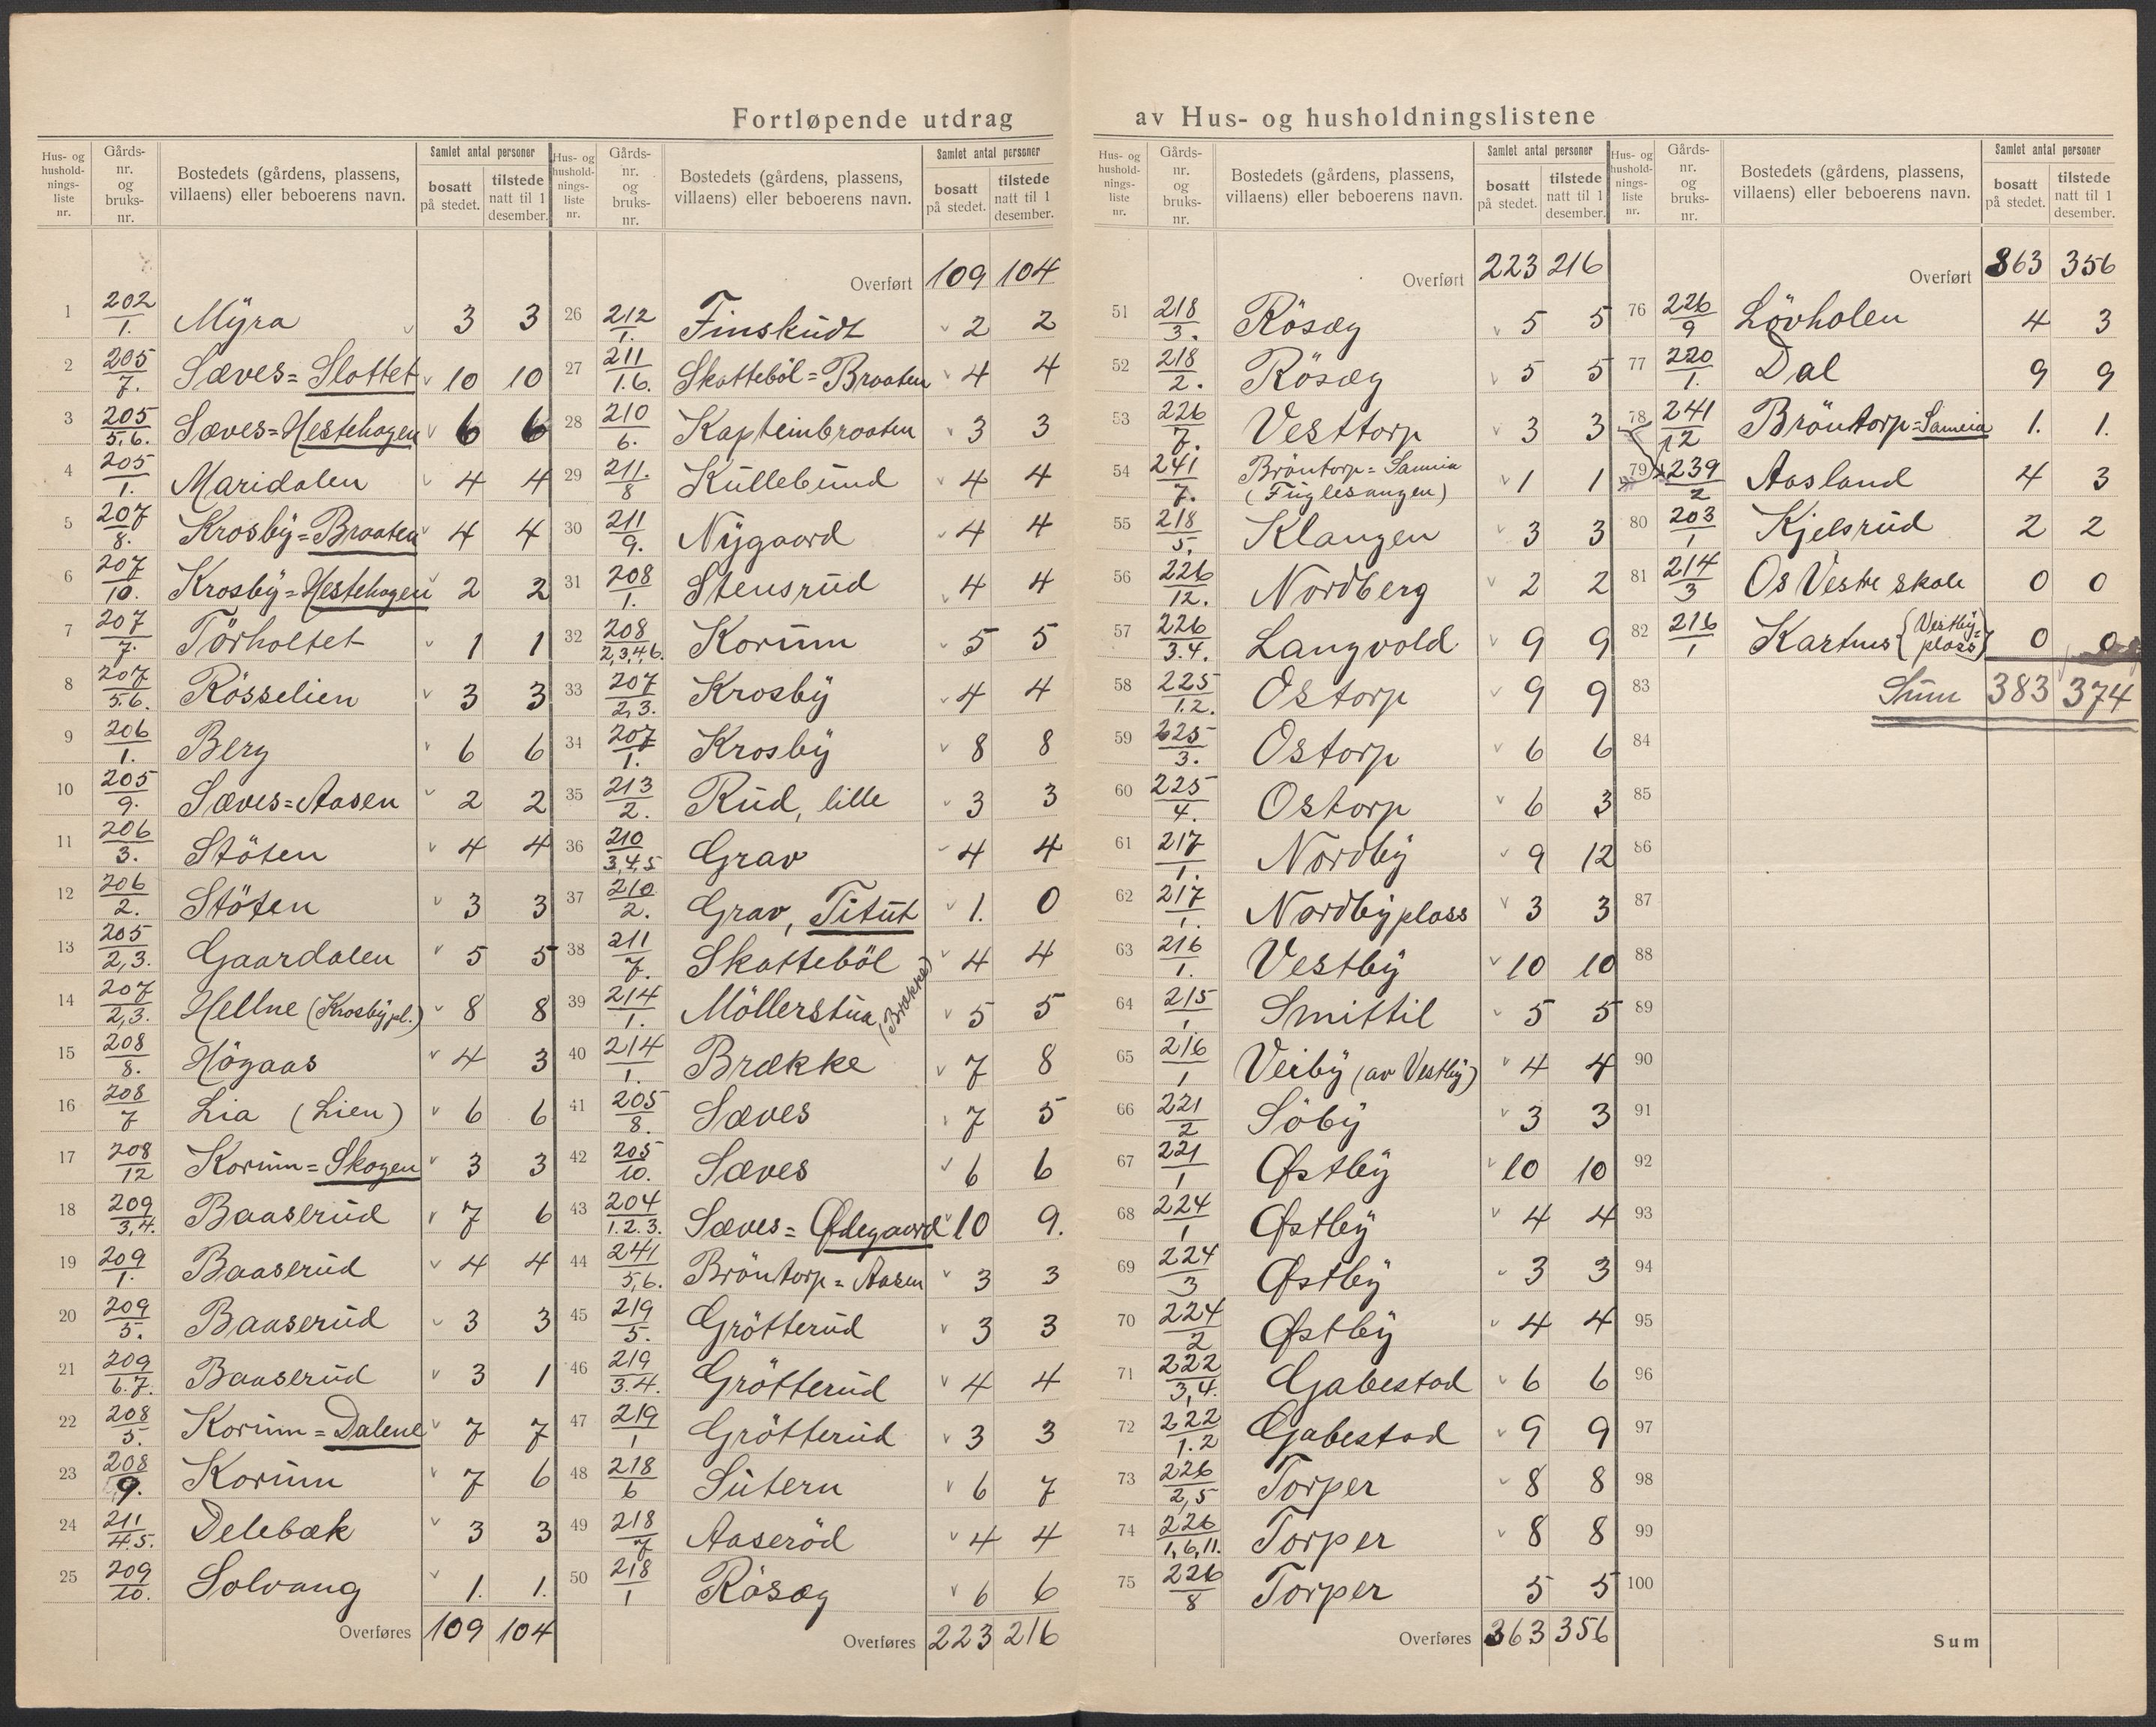 Fortløpende utdrag av Hus- og husholdningslistene
Hus- og hushold-nings-liste nr. | Gårds-nr. og bruks-nr. | Bostedets (gårdens, plassens, villaens) eller beboerens navn. | Samlet antal personer: bosatt på stedet. | tilstede natt til 1 desember.
1 202/1. Myra 3 3
2 205/7. Sæves=Slottet 10 10
3 205/5.6. Sæves=Hestehagen 6 6
4 205/1. Maridalen 4 4
5 207/8. Krosby=Braaten 4 4
6 207/10. Krosby=Hestehagen 2 2
7 207/7. Törholtet 1 1
8 207/5.6. Rösselien 3 3
9 206/1. Berg 6 6
10 205/9. Sæves=Aasen 2 2
11 206/3. Stöten 4 4
12 206/2. Stöten 3 3
13 205/2,3. Gaardalen 5 5
14 207/2,3. Hellne (Krosby pl.) 8 8
15 208/8. Högaas 4 3
16 208/7 Lia (Lien) 6 6
17 208/12 Korum=Skogen 3 3
18 209/3,4. Baaserud 7 6
19 209/1. Baaserud 4 4
20 209/5. Baaserud 3 3
21 209/6.7. Baaserud 3 1
22 208/5. Korum=Dalene 7 7
23 208/9. Korum 7 6
24 211/4.5. Delebæk 3 3
25 209/10. Solvang 1. 1.
Overføres 109 104
Hus- og hushold-nings-liste nr. | Gårds-nr. og bruks-nr. | Bostedets (gårdens, plassens, villaens) eller beboerens navn. | Samlet antal personer: bosatt på stedet. | tilstede natt til 1 desember.
Overført 109 104
26 212/1. Finskudt 2 2
27 211/1.6. Skatteböl=Braaten 4 4
28 210/6. Kapteinbraaten 3 3
29 211./8 Kullebund 4 4
30 211/9. Nygaard 4 4
31 208/1. Stensrud 4 4
32 208/2,3,4,6. Korum 5 5
33 207/2,3. Krosby 4 4
34 207/1. Krosby 8 8
35 213/2. Rud, lille 3 3
36 210/3,4,5 Grav 4 4
37 210/2. Grav, Titut 1. 0
38 211/7. Skatteböl 4 4
39 214/1. Möllerstua (Brække) 5 5
40 214/1. Brække 7 8
41 205/8. Sæves 7 5
42 205/10. Sæves 6 6
43 204/1.2.3. Sæves=Ødegaard 10 9.
44 241/5,6. Bröntorp=Aasen 3 3
45 219/5. Grötterud 3 3
46 219/3.4. Grötterud 4 4
47 219/1 Grötterud 3 3
48 218/6 Sutern 6 7
49 218/7 Aaseröd 4 4
50 218/1 Rösæg 6 6
Overføres 223 216
Hus- og hushold-nings-liste nr. | Gårds-nr. og bruks-nr. | Bostedets (gårdens, plassens, villaens) eller beboerens navn. | Samlet antal personer: bosatt på stedet. | tilstede natt til 1 desember.
Overført 223 216
51 218/3. Rösæg 5 5
52 218/2. Rösæg 5 5
53 226/7. Vesttorp 3 3
54 241/7. Bröntorp=Sameia (Fuglesangen) 1 1
55 218/5. Klangen 3 3
56 226/12. Nordberg 2 2
57 226/3.4. Langvold 9 9
58 225/1.2. Ostorp 9 9
59 225/3. Ostorp 6 6
60 225/4. Ostorp 6 3
61 217/1. Nordby 9 12
62 217/1. Nordbyplass 3 3
63 216/1. Vestby 10 10
64 215/1 Smittil 5 5
65 216/1 Veiby (av Vestby) 4 4
66 221/2 Söby 3 3
67 221/1 Østby 10 10
68 224/1 Østby 4 4
69 224/3 Østby 3 3
70 224/2 Østby 4 4
71 222/3,4. Gabestad 6 6
72 222/1.2 Gabestad 9 9
73 226/2,5 Torper 8 8
74 226/1,6,11. Torper 8 8
75 226/8 Torper 5 5
Overføres 363 356
Hus- og hushold-nings-liste nr. | Gårds-nr. og bruks-nr. | Bostedets (gårdens, plassens, villaens) eller beboerens navn. | Samlet antal personer: bosatt på stedet. | tilstede natt til 1 desember.
Overført 363 356
76 226/9 Lövholen 4 3
77 220/1. Dal 9 9
78 241/12 Bröntorp=Sameia 1. 1.
79 239/2 Aasland 4 3
80 203/1 Kjelsrud 2 2
81 214/3 Os Vestre skole 0 0
82 216/1 Kartus (Vestby=plass) 0 0
83 Sum 383 374
84
85
86
87
88
89
90
91
92
93
94
95
96
97
98
99
100
Sum